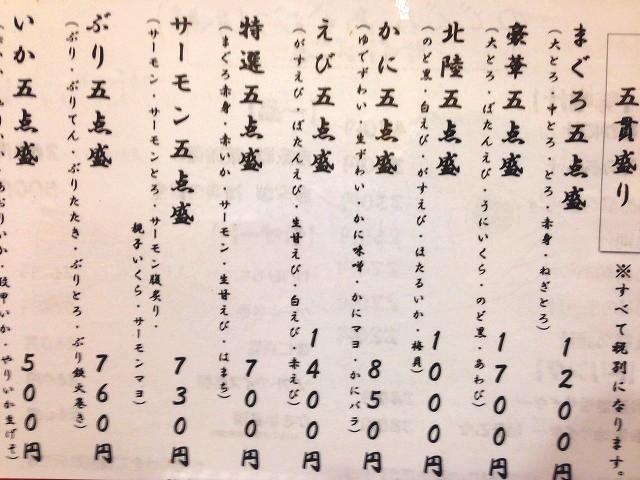 五貫盛り
※すべて税別になります。
まぐろ五点盛
(大とろ・中とろ・とろ・赤身・ねぎとろ)
1200円
豪華五点盛
(大とろ・ぼたんえび・うにいくら・のど黒・あわび)
1700円
北陸五点盛
(のど黒・白えび・がすえび・ほたるいか・梅貝)
1000円
かに五点盛
(ゆでずわい・生ずわい・かに味噌・かにマヨ・かにバラ)
850円
えび五点盛
(がすえび・ぼたんえび・生甘えび・白えび・赤えび)
1400円
特選五点盛
(まぐろ赤身・赤いか・サーモン・生甘えび・はまち)
700円
サーモン五点盛
(サーモン・サーモンとろ・サーモン腹炙り・
親子いくら・サーモンマヨ)
730円
ぶり五点盛
(ぶり・ぶりてん・ぶりたたき・ぶりとろ・ぶり鉄火巻き)
760円
いか五点盛
いか・紋甲いか・やりいか生げそ)
500円